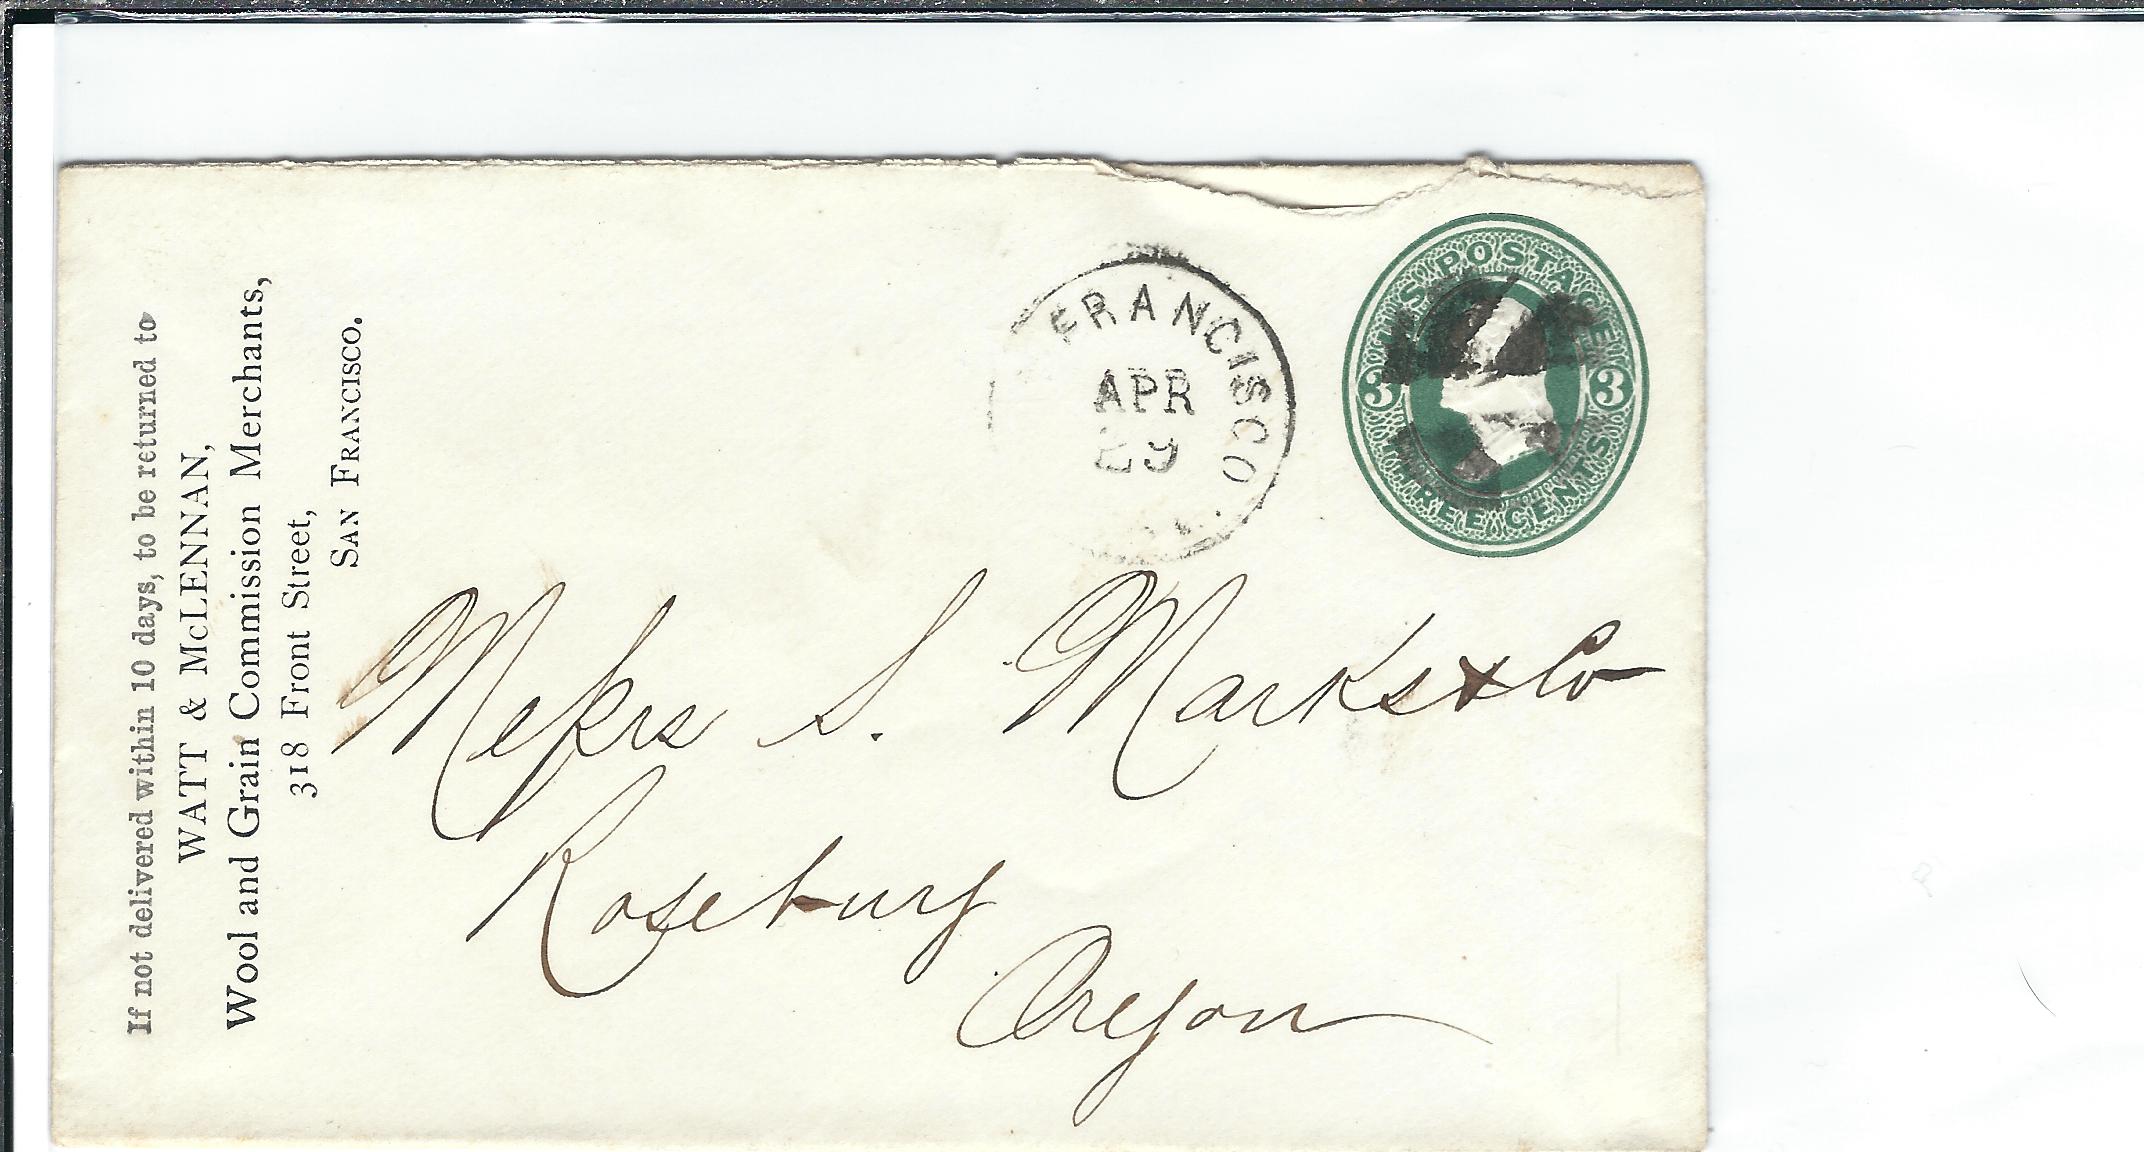 If not delivered within 10 days, to be returned to
WATT & McLENNAN,
Wool and Grain Commission Merchants,
318 Front Street,
SAN FRANCISCO.
FRANCISCO
APR
29
U.S. POSTAGE
3 3
THREE CENTS
Messrs S. Marks & Co
Roseburg
Oregon